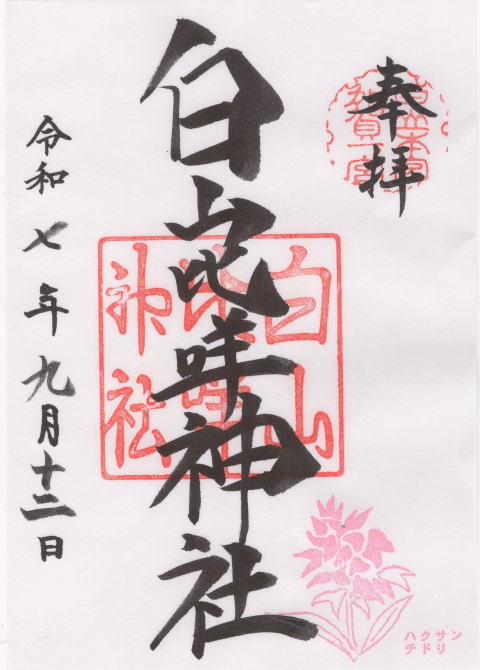 奉拝
白山比咩神社
令和七年九月十二日
白山比咩神社
ハクサン
チドリ